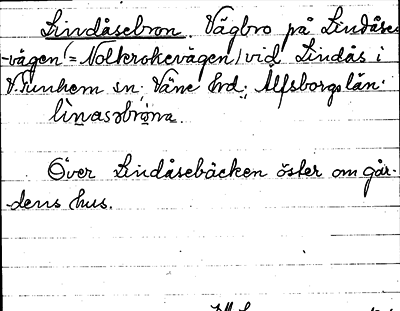 Lindåsebron. Vägbro på Lindåse-
vägen (= Nolkrokevägen) vid Lindås i
V. Tunhem sn. Väne hd. Älfsborgs län.
linasobròna.
Över Lindåsebäcken öster om går-
dens hus.